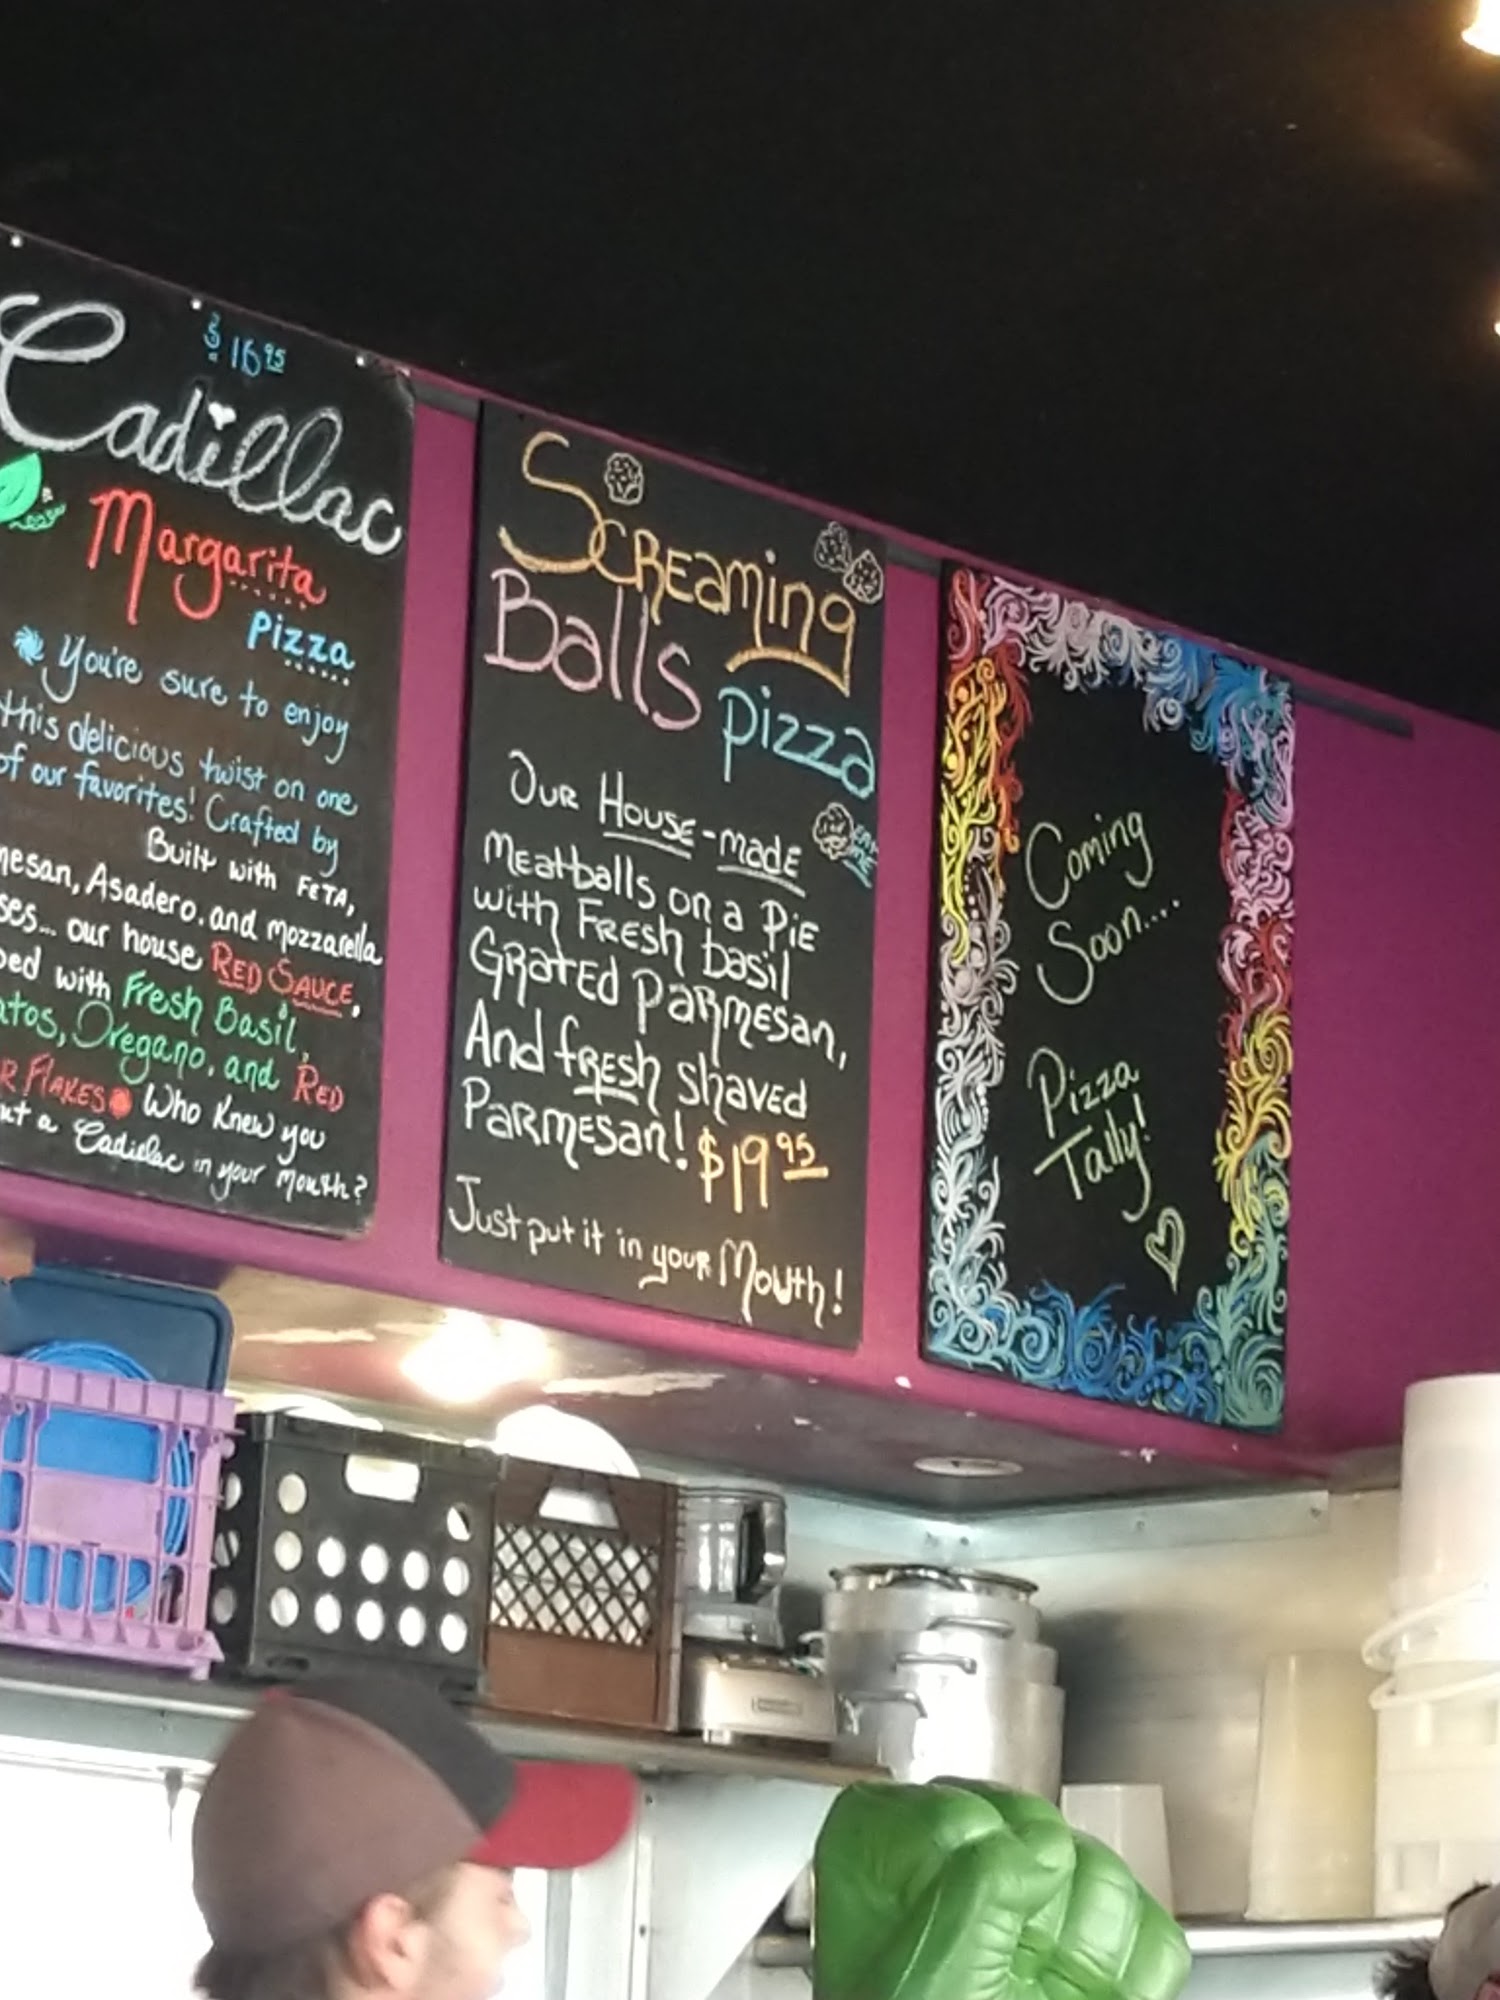 $16.95
Cadillac
Margarita
Pizza
You're sure to enjoy
this delicious twist on one
of our favorites! Crafted by
Built with FETA,
mesan, Asadero, and mozzarella
ses... our house RED SAUCE,
ped with Fresh Basil,
atos, Oregano, and RED
R FLAKES Who Knew you
ut a Cadillac in your mouth?
SCREaming
Balls pizza
OUR HOUSE-made
EAT
ME
Meatballs on a PiE
with FRESH basil
GRatED PaRMESan,
And fRESH shaved
PaRMESan! $19.95
Just put it in youR Mouth!
Coming
Soon....
Pizza
Tally!